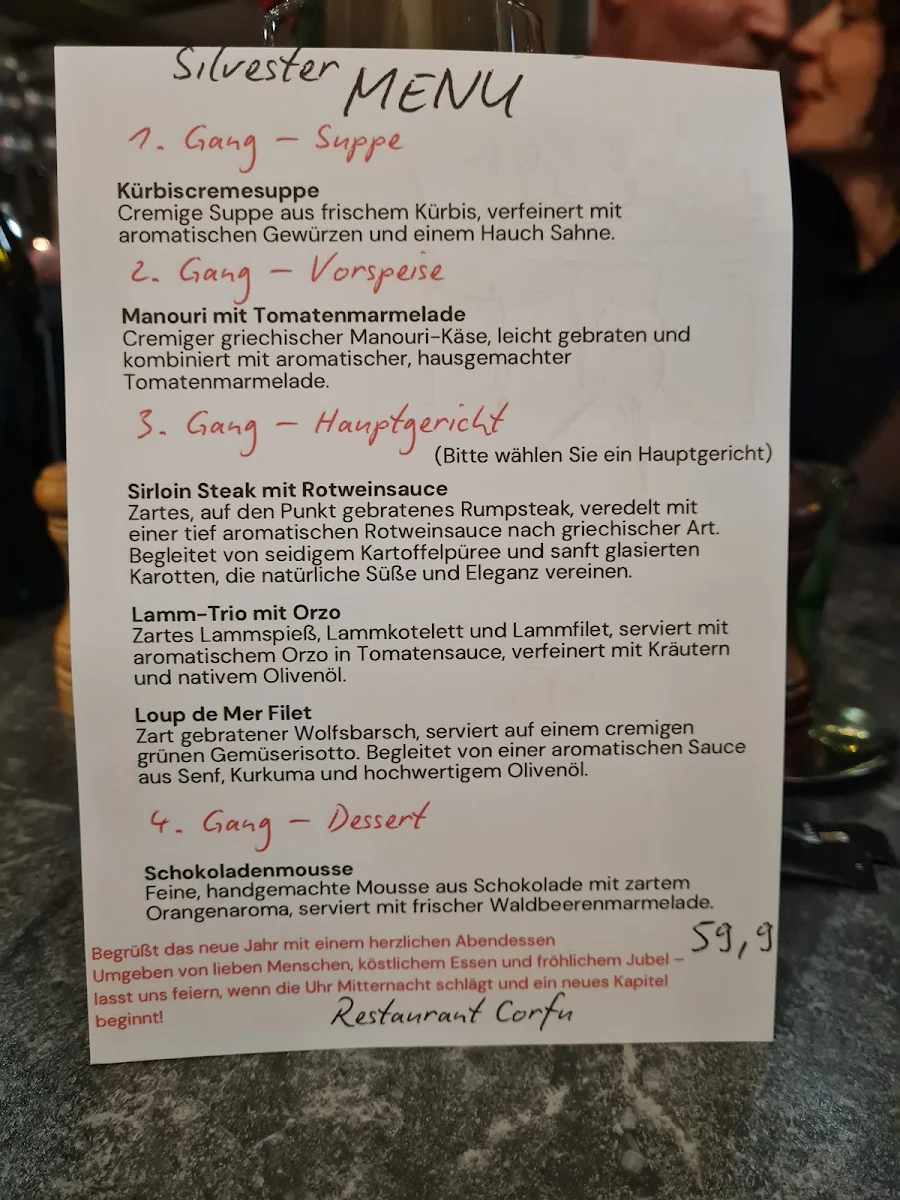 Silvester MENU
1. Gang - Suppe
Kürbiscremesuppe
Cremige Suppe aus frischem Kürbis, verfeinert mit
aromatischen Gewürzen und einem Hauch Sahne.
2. Gang - Vorspeise
Manouri mit Tomatenmarmelade
Cremiger griechischer Manouri-Käse, leicht gebraten und
kombiniert mit aromatischer, hausgemachter
Tomatenmarmelade.
3. Gang - Hauptgericht
(Bitte wählen Sie ein Hauptgericht)
Sirloin Steak mit Rotweinsauce
Zartes, auf den Punkt gebratenes Rumpsteak, veredelt mit
einer tief aromatischen Rotweinsauce nach griechischer Art.
Begleitet von seidigem Kartoffelpüree und sanft glasierten
Karotten, die natürliche Süße und Eleganz vereinen.
Lamm-Trio mit Orzo
Zartes Lammspieß, Lammkotelett und Lammfilet, serviert mit
aromatischem Orzo in Tomatensauce, verfeinert mit Kräutern
und nativem Olivenöl.
Loup de Mer Filet
Zart gebratener Wolfsbarsch, serviert auf einem cremigen
grünen Gemüserisotto. Begleitet von einer aromatischen Sauce
aus Senf, Kurkuma und hochwertigem Olivenöl.
4. Gang - Dessert
Schokoladenmousse
Feine, handgemachte Mousse aus Schokolade mit zartem
Orangenaroma, serviert mit frischer Waldbeerenmarmelade.
59,9
Begrüßt das neue Jahr mit einem herzlichen Abendessen
Umgeben von lieben Menschen, köstlichem Essen und fröhlichem Jubel –
lasst uns feiern, wenn die Uhr Mitternacht schlägt und ein neues Kapitel
beginnt!
Restaurant Corfu